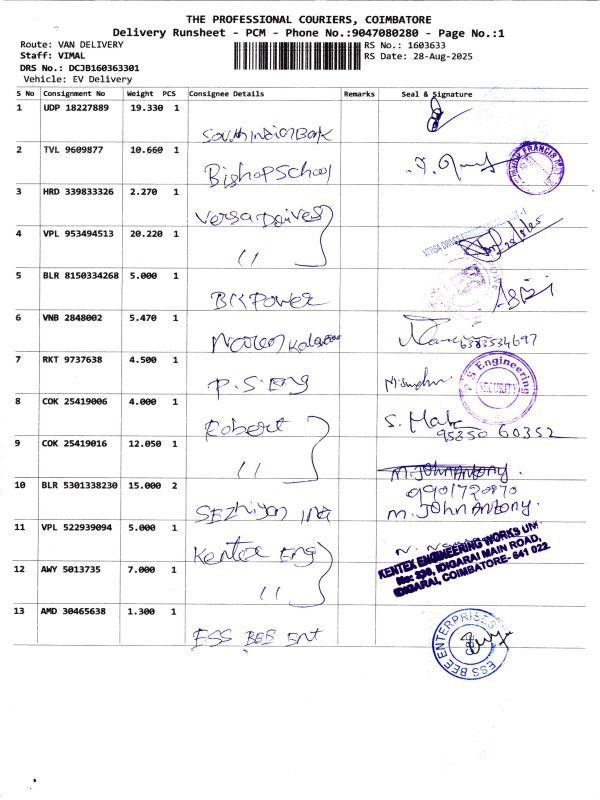 THE PROFESSIONAL COURIERS, COIMBATORE
Delivery Runsheet - PCM - Phone No.:9047080280 - Page No.:1
Route: VAN DELIVERY
Staff: VIMAL
DRS No.: DCJB160363301
Vehicle: EV Delivery
RS No.: 1603633
RS Date: 28-Aug-2025
S No Consignment No Weight PCS Consignee Details Remarks Seal & Signature
1 UDP 18227889 19.330 1
South Indian Bank
2 TVL 9609877 10.660 1
Bishop School
3 HRD 339833326 2.270 1
Versa Drives
4 VPL 953494513 20.220 1
11
5 BLR 8150334268 5.000 1
BK Power
6 VNB 2848002 5.470 1
6383534697
7 RKT 9737638 4.500 1
P.S. Eng
P S Engineering
SECURITY
8 COK 25419006 4.000 1
Robert
95350 60352
9 COK 25419016 12.050 1
11
M. John Antony.
9901720870
10 BLR 5301338230 15.000 2
SEzhiyan Ind
M. John Antony.
11 VPL 522939094 5.000 1
Kentex Eng
KENTEX ENGINEERING WORKS UNI
No: 330, IDIGARAI MAIN ROAD,
IDIGARAI, COIMBATORE- 641 022.
12 AWY 5013735 7.000 1
11
13 AMD 30465638 1.300 1
ESS BEE Ent
ESS BEE ENTERPRISES